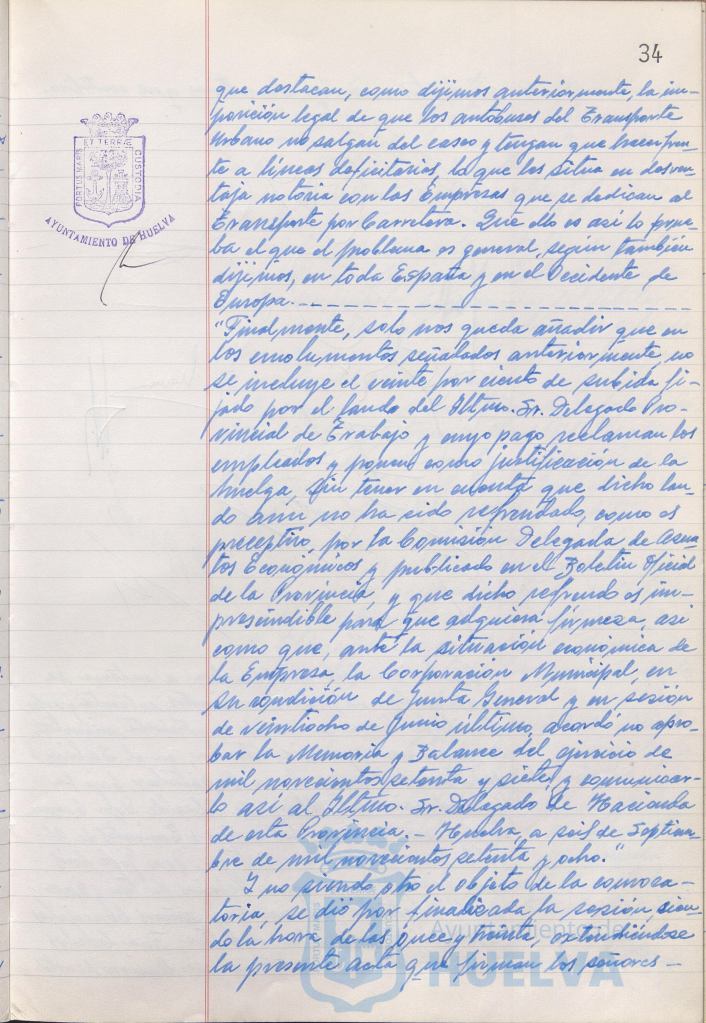 34
PORTUS MARIS
ET TERRÆ
CUSTODIA
AYUNTAMIENTO DE HUELVA
que destacan, como dijimos anteriormente, la im-
posición legal de que los autobuses del Transporte
Urbano no salgan del casco y tengan que hacer fren-
te a líneas deficitarias, lo que los situa en desven-
taja notoria con las Empresas que se dedican al
Transporte por Carretera. Que ello es así lo prue-
ba el que el problema es general, según también
dijimos, en toda España y en el Occidente de
Europa.
"Finalmente, solo nos queda añadir que en
los emolumentos señalados anteriormente, no
se incluye el veinte por ciento de subida fi-
jado por el laudo del Iltmo. Sr. Delegado Pro-
vincial de Trabajo y cuyo pago reclaman los
empleados y ponen como justificación de la
huelga, sin tener en cuenta que dicho lau-
do aun no ha sido refrendado, como es
preceptivo, por la Comisión Delegada de Asun-
tos Económicos y publicado en el Boletín Oficial
de la Provincia, y que dicho refrendo es im-
prescindible para que adquiera firmeza, así
como que, ante la situación económica de
la Empresa, la Corporación Municipal, en
su condición de Junta General y en sesión
de veintiocho de Junio último, acordó no apro-
bar la Memoria y Balance del ejercicio de
mil novecientos setenta y siete, y comunicar-
lo así al Iltmo. Sr. Delegado de Hacienda
de esta Provincia. - Huelva, a seis de Septiem-
bre de mil novecientos setenta y ocho."
Y no siendo otro el objeto de la convoca-
toria, se dió por finalizada la sesión, sien-
do la hora de las once y treinta, extendiéndose
la presente Acta que firman los señores -
Ayuntamiento de
HUELVA